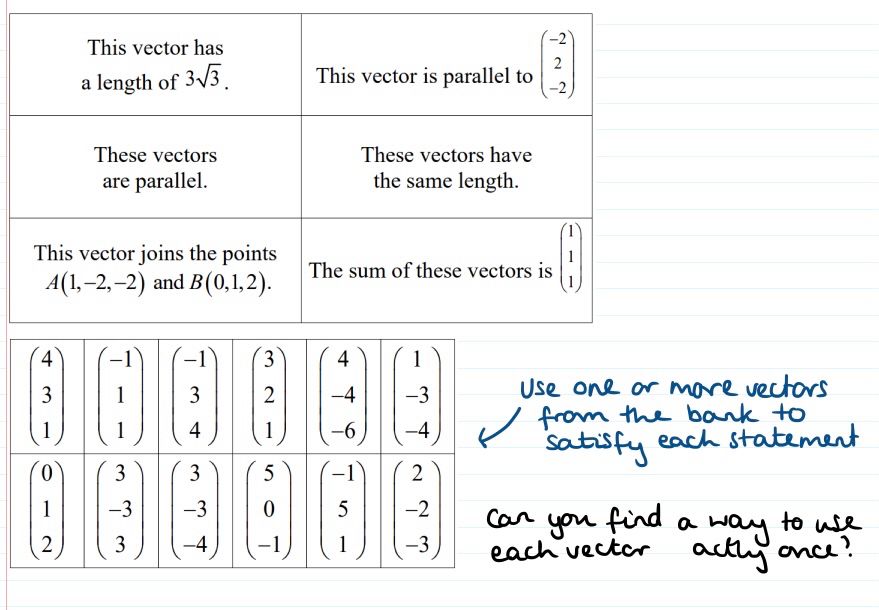 This vector has
a length of 3√3.
This vector is parallel to (−2 2 −2)
These vectors
are parallel.
These vectors have
the same length.
This vector joins the points
A(1,−2,−2) and B(0,1,2).
The sum of these vectors is (1 1 1)
(4 3 1) (−1 1 1) (−1 3 4) (3 2 1) (4 −4 −6) (1 −3 −4)
(0 1 2) (3 −3 3) (3 −3 −4) (5 0 −1) (−1 5 1) (2 −2 −3)
Use one or more vectors
from the bank to
satisfy each statement
Can you find a way to use
each vector actly once?